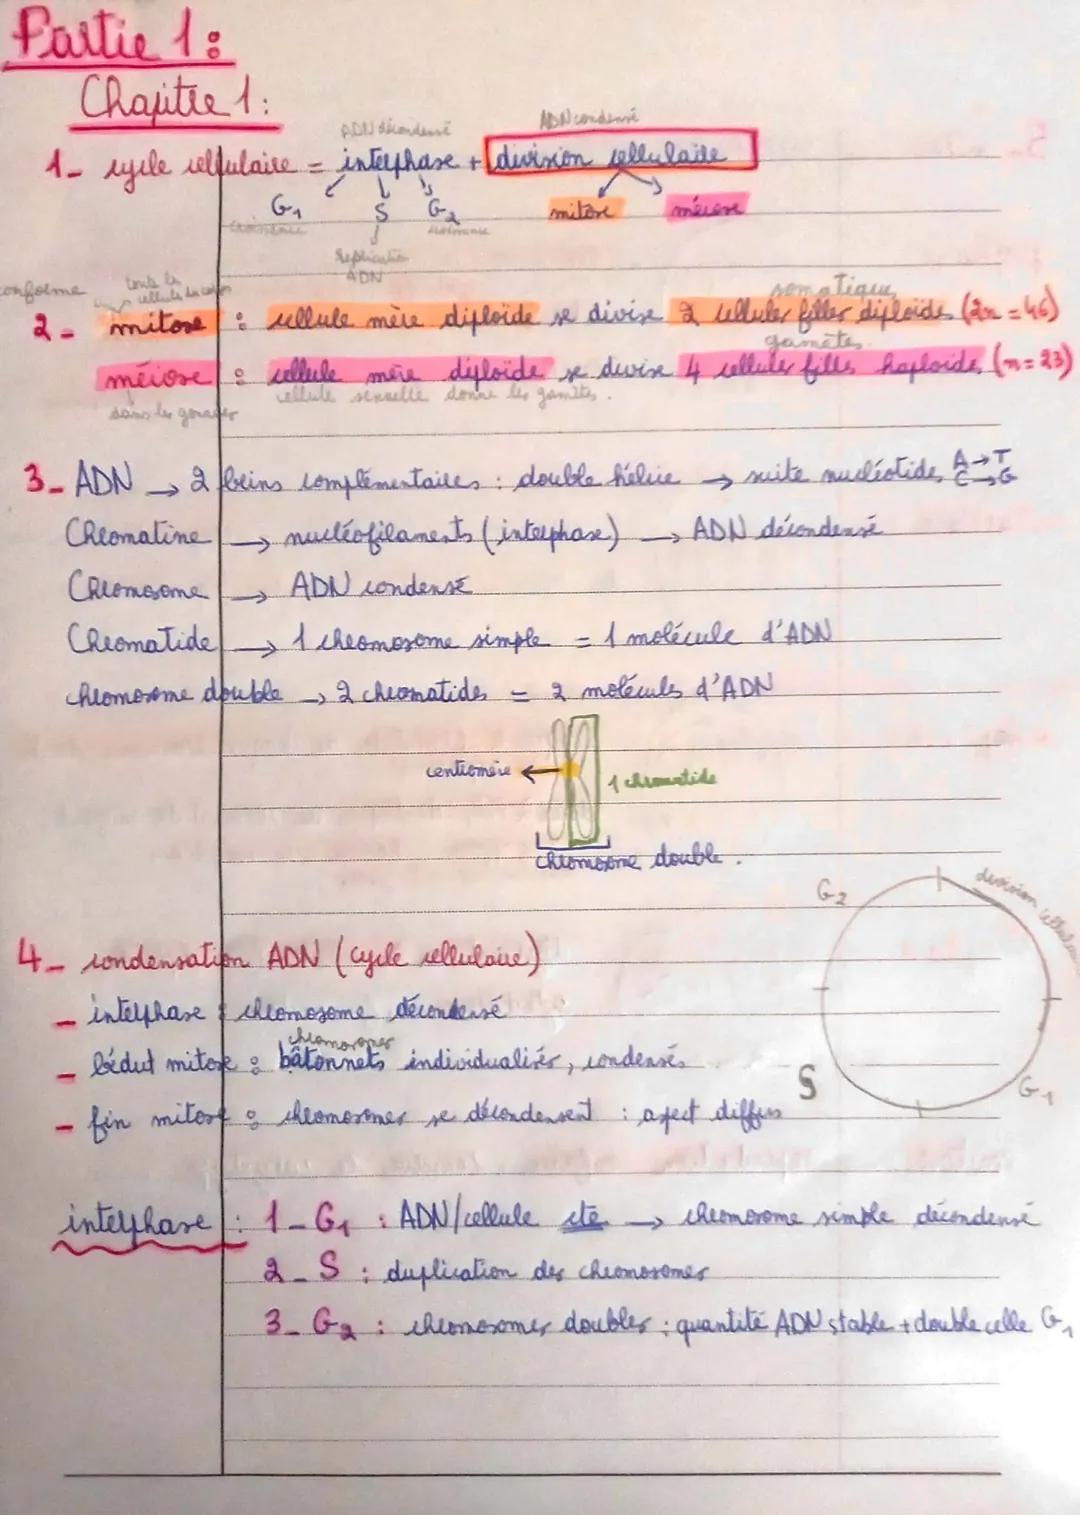 Partie 1:
Chapitre 1:
ADN décondensé ADN condensé
1- cycle cellulaire = interphase + division cellulaire
G1 S G2 mitose méiose
croissance
Réplication
ADN
conforme toute les cellules du corps somatiques
2- mitose : cellule mère diploïde se divise 2 cellules filles diploïdes (2n = 46)
gamètes.
méiose : cellule mère diploïde se divise 4 cellules filles haploïdes (n = 23)
dans les gonades cellule sexuelle donne les gamètes.
3- ADN → 2 brins complémentaires : double hélice → suite nucléotides A → T
C → G
Chromatine → nucléofilaments (interphase) → ADN décondensé
Chromosome → ADN condensé
Chromatide → 1 chromosome simple = 1 molécule d'ADN
chromosome double → 2 chromatides = 2 molécules d'ADN
centromère ← 1 chromatide
chromosome double.
G2 division cellulaire
4- condensation ADN (cycle cellulaire)
- interphase : chromosome décondensé
chromosomes
- bédut mitose : bâtonnets individualisés, condensés
S G1
- fin mitose : chromosomes se décondensent : aspect diffus
interphase : 1- G1 : ADN/cellule cte → chromosome simple décondensé
2- S : duplication des chromosomes
3- G2 : chromosomes doubles ; quantité ADN stable + double celle G1